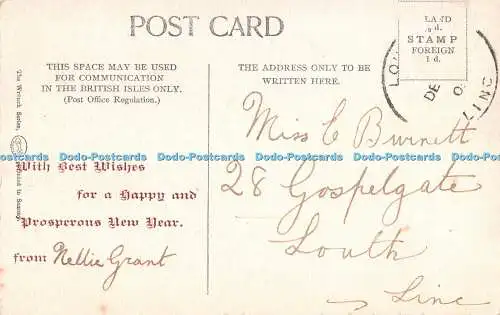 POST CARD
THIS SPACE MAY BE USED
FOR COMMUNICATION
IN THE BRITISH ISLES ONLY.
(Post Office Regulation.)
THE ADDRESS ONLY TO BE
WRITTEN HERE.
STAMP
FOREIGN
1d.
The Wrench Series,
Dodo-Postcards Dodo-Postcards Dodo-Postcards Dodo-Postcards Dodo-Postcards
With Best Wishes
for a Happy and
Prosperous New Year.
from Nellie Grant
Miss C Burnett
28 Gospelgate
Louth
Linc